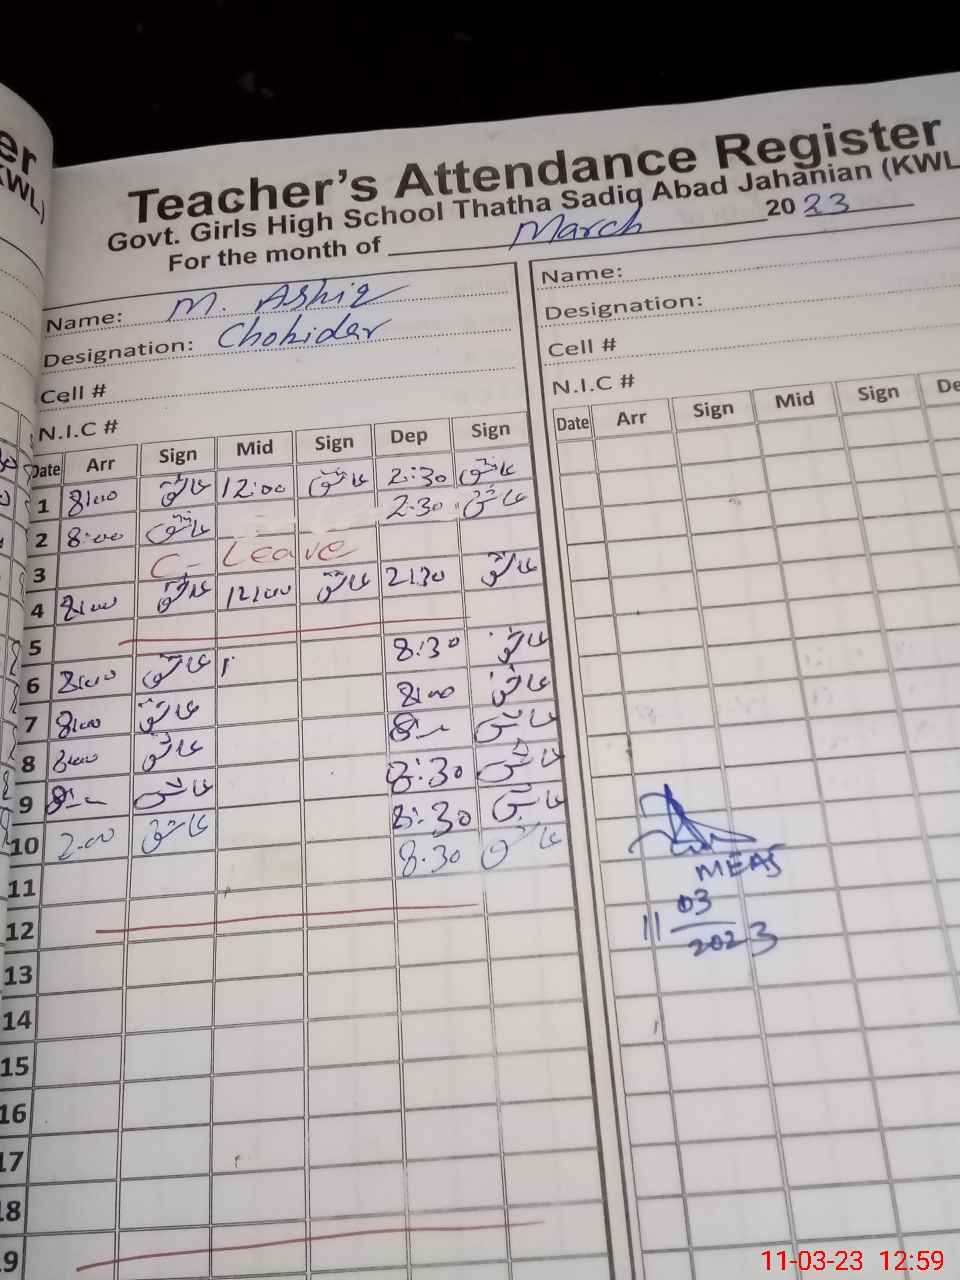 er
KWL)
Teacher's Attendance Register
Govt. Girls High School Thatha Sadiq Abad Jahanian (KWL
For the month of March 2023
Name: M. Ashiq
Designation: Chokidar
Cell #
N.I.C #
Date Arr Sign Mid Sign Dep Sign
1 8:00 عاشق 12:00 عاشق 2:30 عاشق
2 8:00 عاشق 2:30 عاشق
3 C- Leave
4 8:00 عاشق 12:00 عاشق 2:30 عاشق
5
6 8:00 عاشق 8:30 عاشق
7 8:00 عاشق 8:00 عاشق
8 8:00 عاشق 8:- عاشق
9 8:- عاشق 8:30 عاشق
10 2:00 عاشق 8:30 عاشق
8:30 عاشق
11
12
13
14
15
16
17
18
19
Name:
Designation:
Cell #
N.I.C #
Date Arr Sign Mid Sign De
MEAS
11 03
2023
11-03-23 12:59